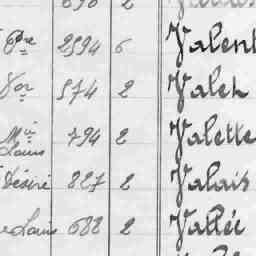 Pre 2594 6 Valent
Vor 574 2 Valet
Mie Louis 794 2 Valette
Désiré 827 2 Valais
Louis 688 2 Vallée